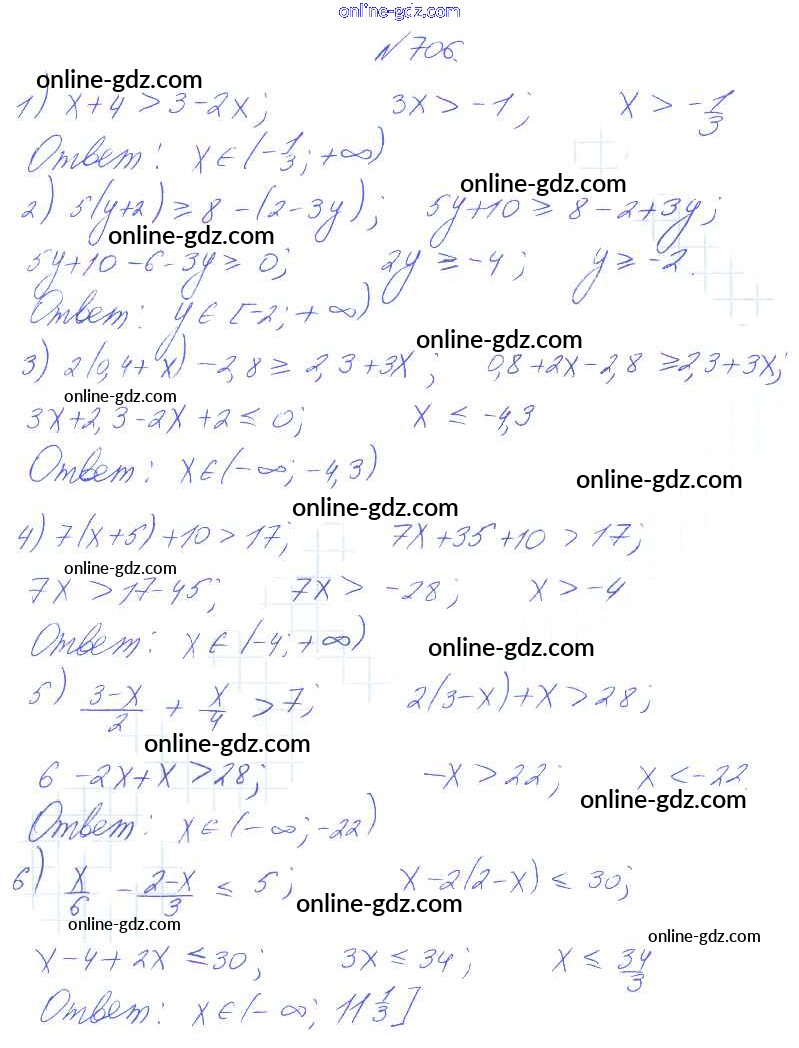 online-gdz.com
N 706.
online-gdz.com
1) x+4 > 3-2x; 3x > -1; x > -1/3
Ответ: x∈(-1/3; +∞)
online-gdz.com
2) 5(y+2) ≥ 8-(2-3y); 5y+10 ≥ 8-2+3y;
online-gdz.com
5y+10-6-3y ≥ 0; 2y ≥ -4; y ≥ -2.
Ответ: y∈[-2; +∞)
online-gdz.com
3) 2(0,4+x)-2,8 ≥ 2,3+3x; 0,8+2x-2,8 ≥ 2,3+3x;
online-gdz.com
3x+2,3-2x+2 ≤ 0; x ≤ -4,3
Ответ: x∈(-∞; -4,3)
online-gdz.com
online-gdz.com
4) 7(x+5)+10 > 17; 7x+35+10 > 17;
online-gdz.com
7x > 17-45; 7x > -28; x > -4
Ответ: x∈(-4; +∞)
online-gdz.com
5) (3-x)/2 + x/4 > 7; 2(3-x)+x > 28;
online-gdz.com
6-2x+x > 28; -x > 22; x < -22.
online-gdz.com
Ответ: x∈(-∞; -22)
6) x/6 - (2-x)/3 ≤ 5; x-2(2-x) ≤ 30;
online-gdz.com
online-gdz.com
x-4+2x ≤ 30; 3x ≤ 34; x ≤ 34/3
Ответ: x∈(-∞; 11 1/3]